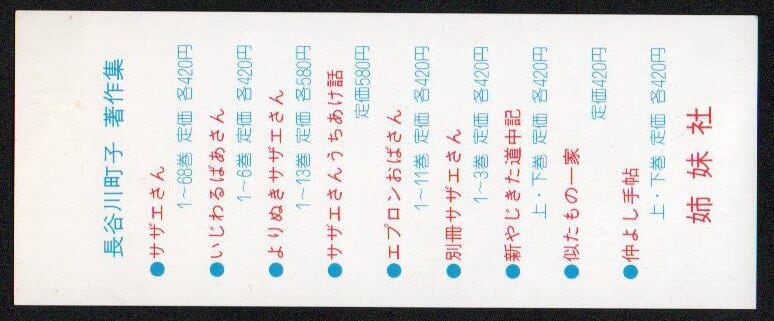 長谷川町子 著作集
●サザエさん
1～68巻 定価 各420円
●いじわるばあさん
1～6巻 定価 各420円
●よりぬきサザエさん
1～13巻 定価 各580円
●サザエさんうちあけ話
定価580円
●エプロンおばさん
1～11巻 定価 各420円
●別冊サザエさん
1～3巻 定価 各420円
●新やじきた道中記
上・下巻 定価 各420円
●似たもの一家
定価420円
●仲よし手帖
上・下巻 定価 各420円
姉妹社